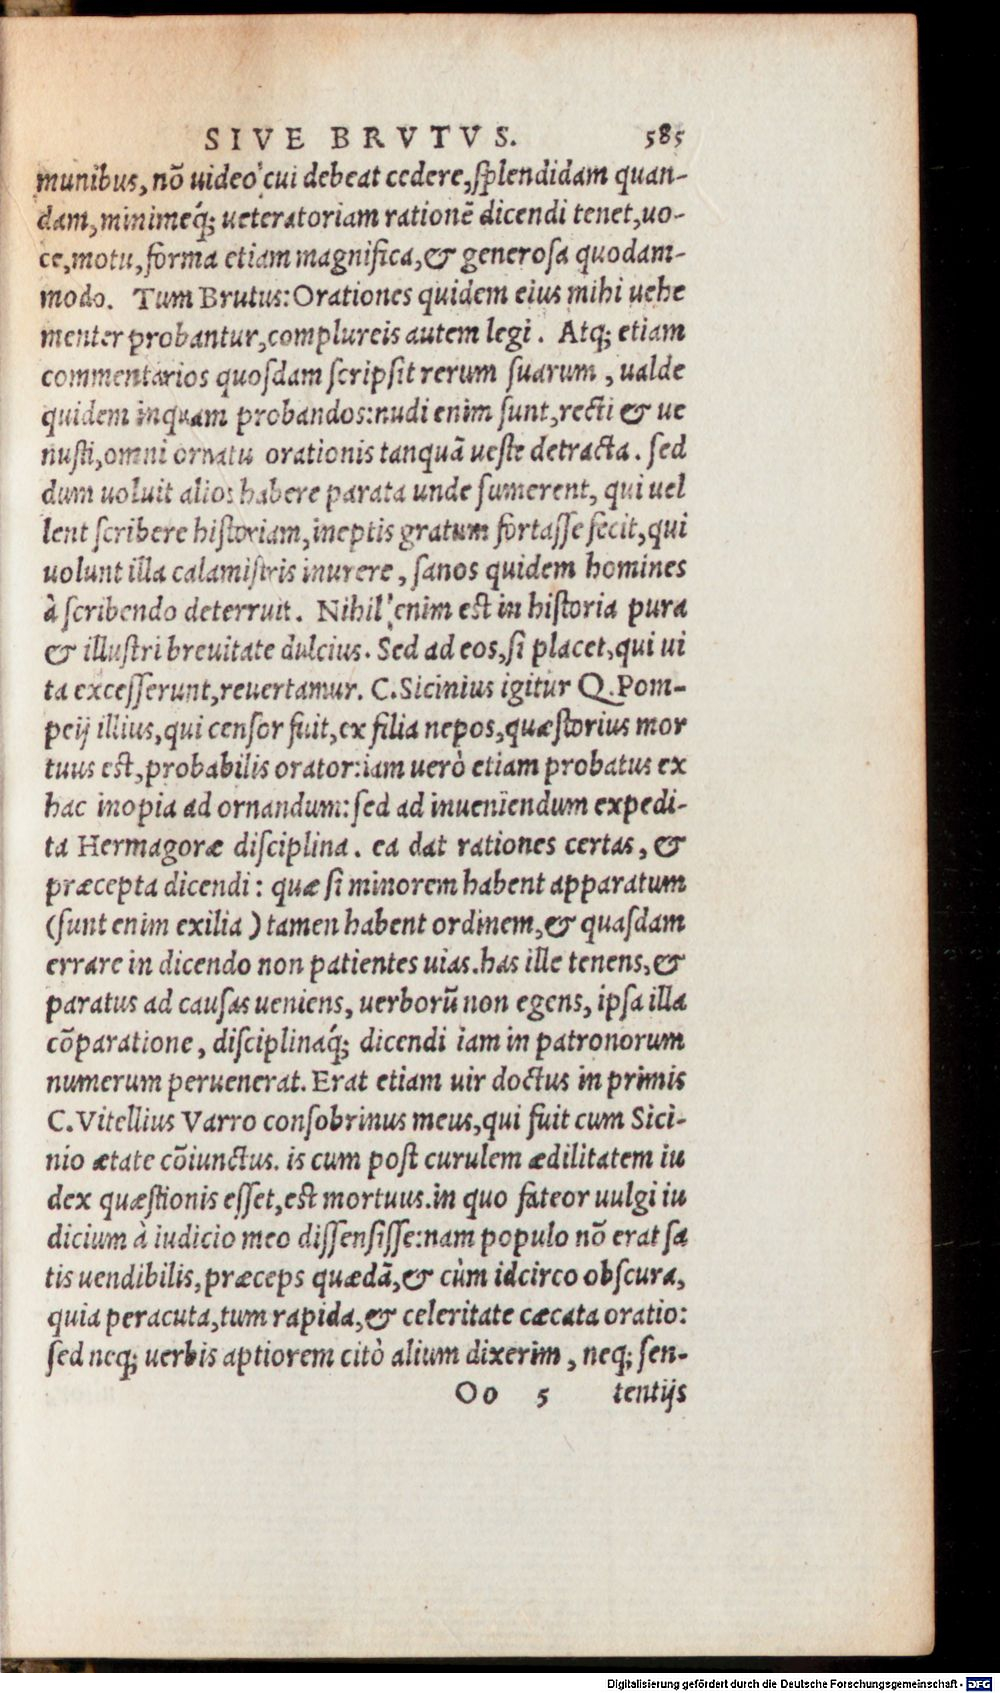 SIVE BRVTVS. 585
munibus, nõ uideo cui debeat cedere, splendidam quan-
dam, minimeq́; ueteratoriam rationẽ dicendi tenet, uo-
ce, motu, forma etiam magnifica, & generosa quodam-
modo. Tum Brutus: Orationes quidem eius mihi uehe
menter probantur, complureis autem legi. Atq; etiam
commentarios quosdam scripsit rerum suarum, ualde
quidem inquam probandos: nudi enim sunt, recti & ue
nusti, omni ornatu orationis tanquã ueste detracta. sed
dum uoluit alios habere parata unde sumerent, qui uel
lent scribere historiam, ineptis gratum fortasse fecit, qui
uolunt illa calamistris inurere, sanos quidem homines
à scribendo deterruit. Nihil enim est in historia pura
& illustri breuitate dulcius. Sed ad eos, si placet, qui ui
ta excesserunt, reuertamur. C. Sicinius igitur Q. Pom-
peij illius, qui censor fuit, ex filia nepos, quæstorius mor
tuus est, probabilis orator: iam uerò etiam probatus ex
hac inopia ad ornandum: sed ad inueniendum expedi-
ta Hermagoræ disciplina. ea dat rationes certas, &
præcepta dicendi: quæ si minorem habent apparatum
(sunt enim exilia) tamen habent ordinem, & quasdam
errare in dicendo non patientes uias. has ille tenens, &
paratus ad causas ueniens, uerborũ non egens, ipsa illa
cõparatione, disciplinaq́; dicendi iam in patronorum
numerum peruenerat. Erat etiam uir doctus in primis
C. Vitellius Varro consobrinus meus, qui fuit cum Sici-
nio ætate cõiunctus. is cum post curulem ædilitatem iu
dex quæstionis esset, est mortuus. in quo fateor uulgi iu
dicium à iudicio meo dissensisse: nam populo nõ erat sa
tis uendibilis, præceps quædã, & cùm idcirco obscura,
quia peracuta, tum rapida, & celeritate cæcata oratio:
sed neq; uerbis aptiorem citò alium dixerim, neq; sen-
Oo 5 tentijs
Digitalisierung gefördert durch die Deutsche Forschungsgemeinschaft - DFG